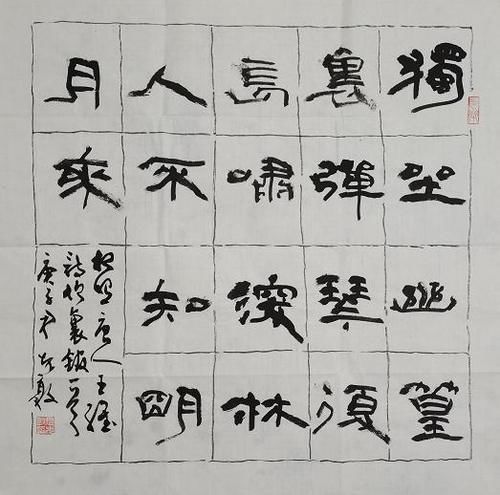 獨坐幽篁
裏彈琴復
長嘯深林
人不知明
月來
相照 唐人王維
詩竹裏館一首
庚子